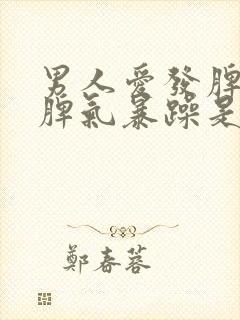 男人愛發脾
脾氣暴躁是
鄭春蓉